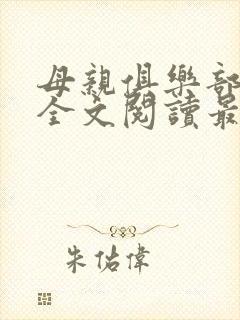 母親俱樂部
全文閱讀最
朱佑偉